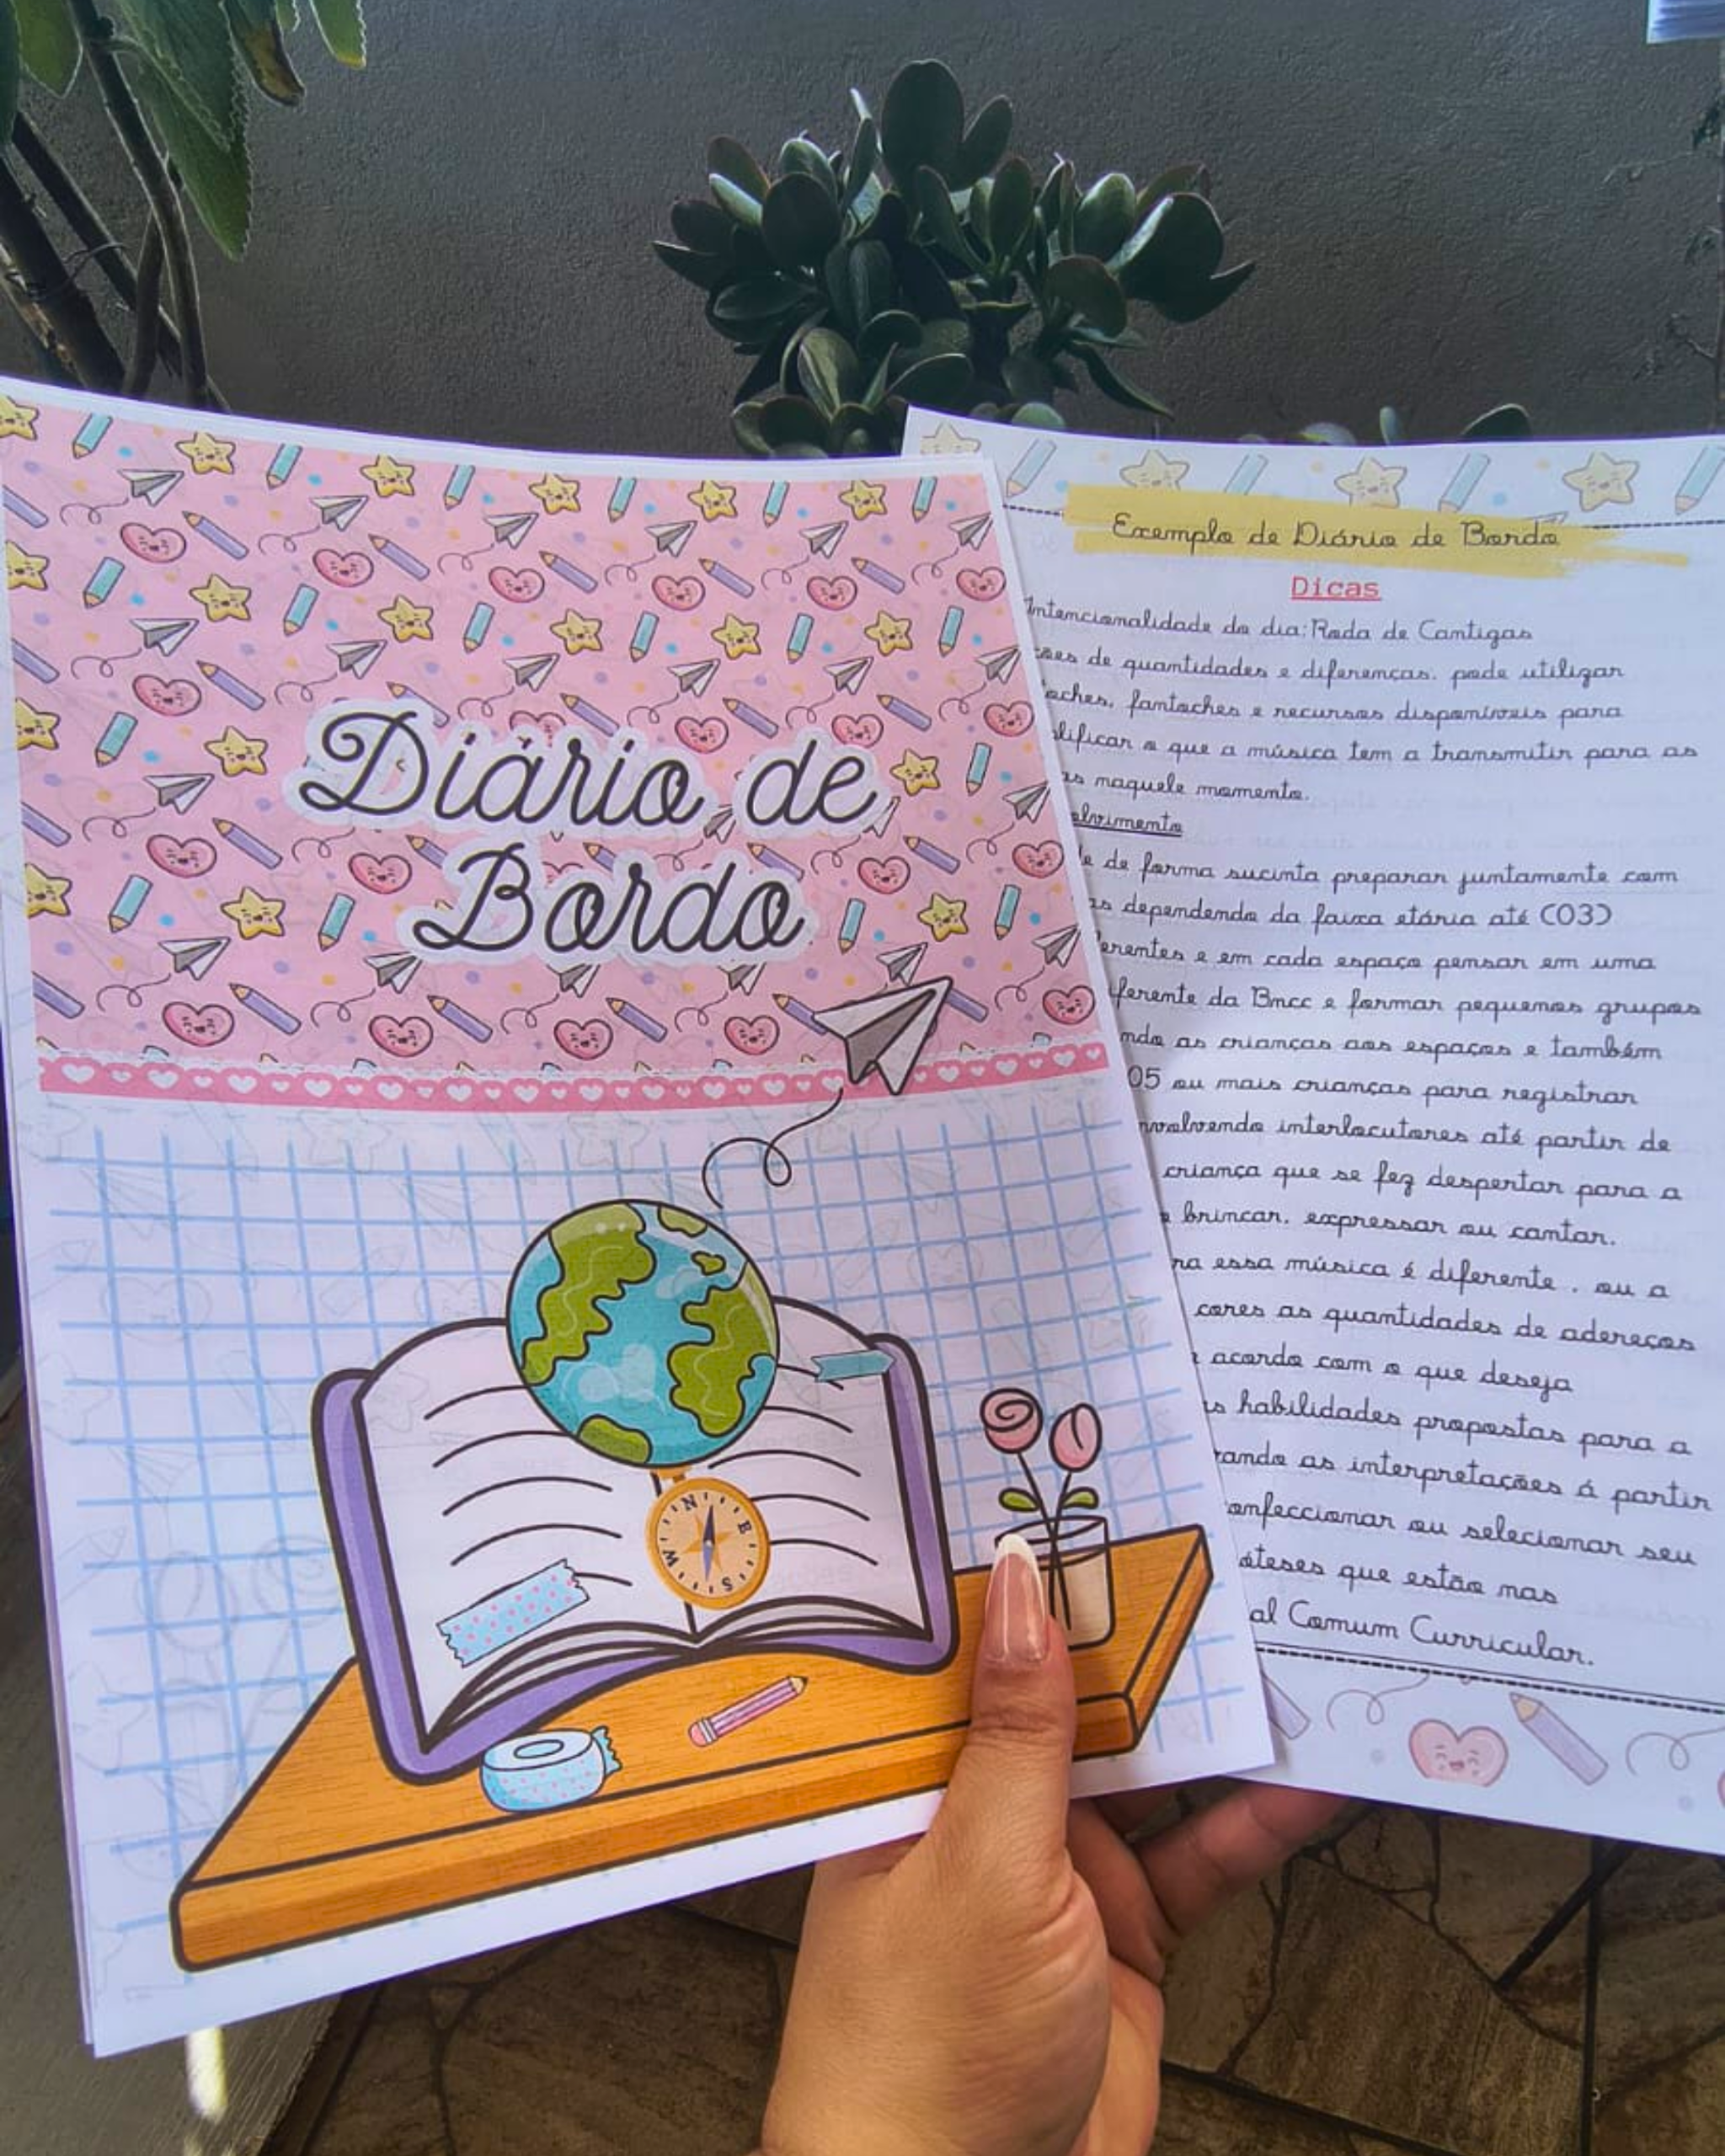 Diário de
Bordo
N
E
S
W
Exemplo de Diário de Bordo
Dicas
Intencionalidade do dia: Roda de Cantigas
de quantidades e diferenças. pode utilizar
fantoches e recursos disponíveis para
o que a música tem a transmitir para as
naquele momento.
de forma sucinta preparar juntamente com
dependendo da faixa etária até (03)
e em cada espaço pensar em uma
da Bncc e formar pequenos grupos
as crianças aos espaços e também
05 ou mais crianças para registrar
interlocutores até partir de
criança que se fez despertar para a
brincar. expressar ou cantar.
essa música é diferente . ou a
cores as quantidades de adereços
acordo com o que deseja
habilidades propostas para a
as interpretações á partir
ou selecionar seu
que estão nas
Comum Curricular.